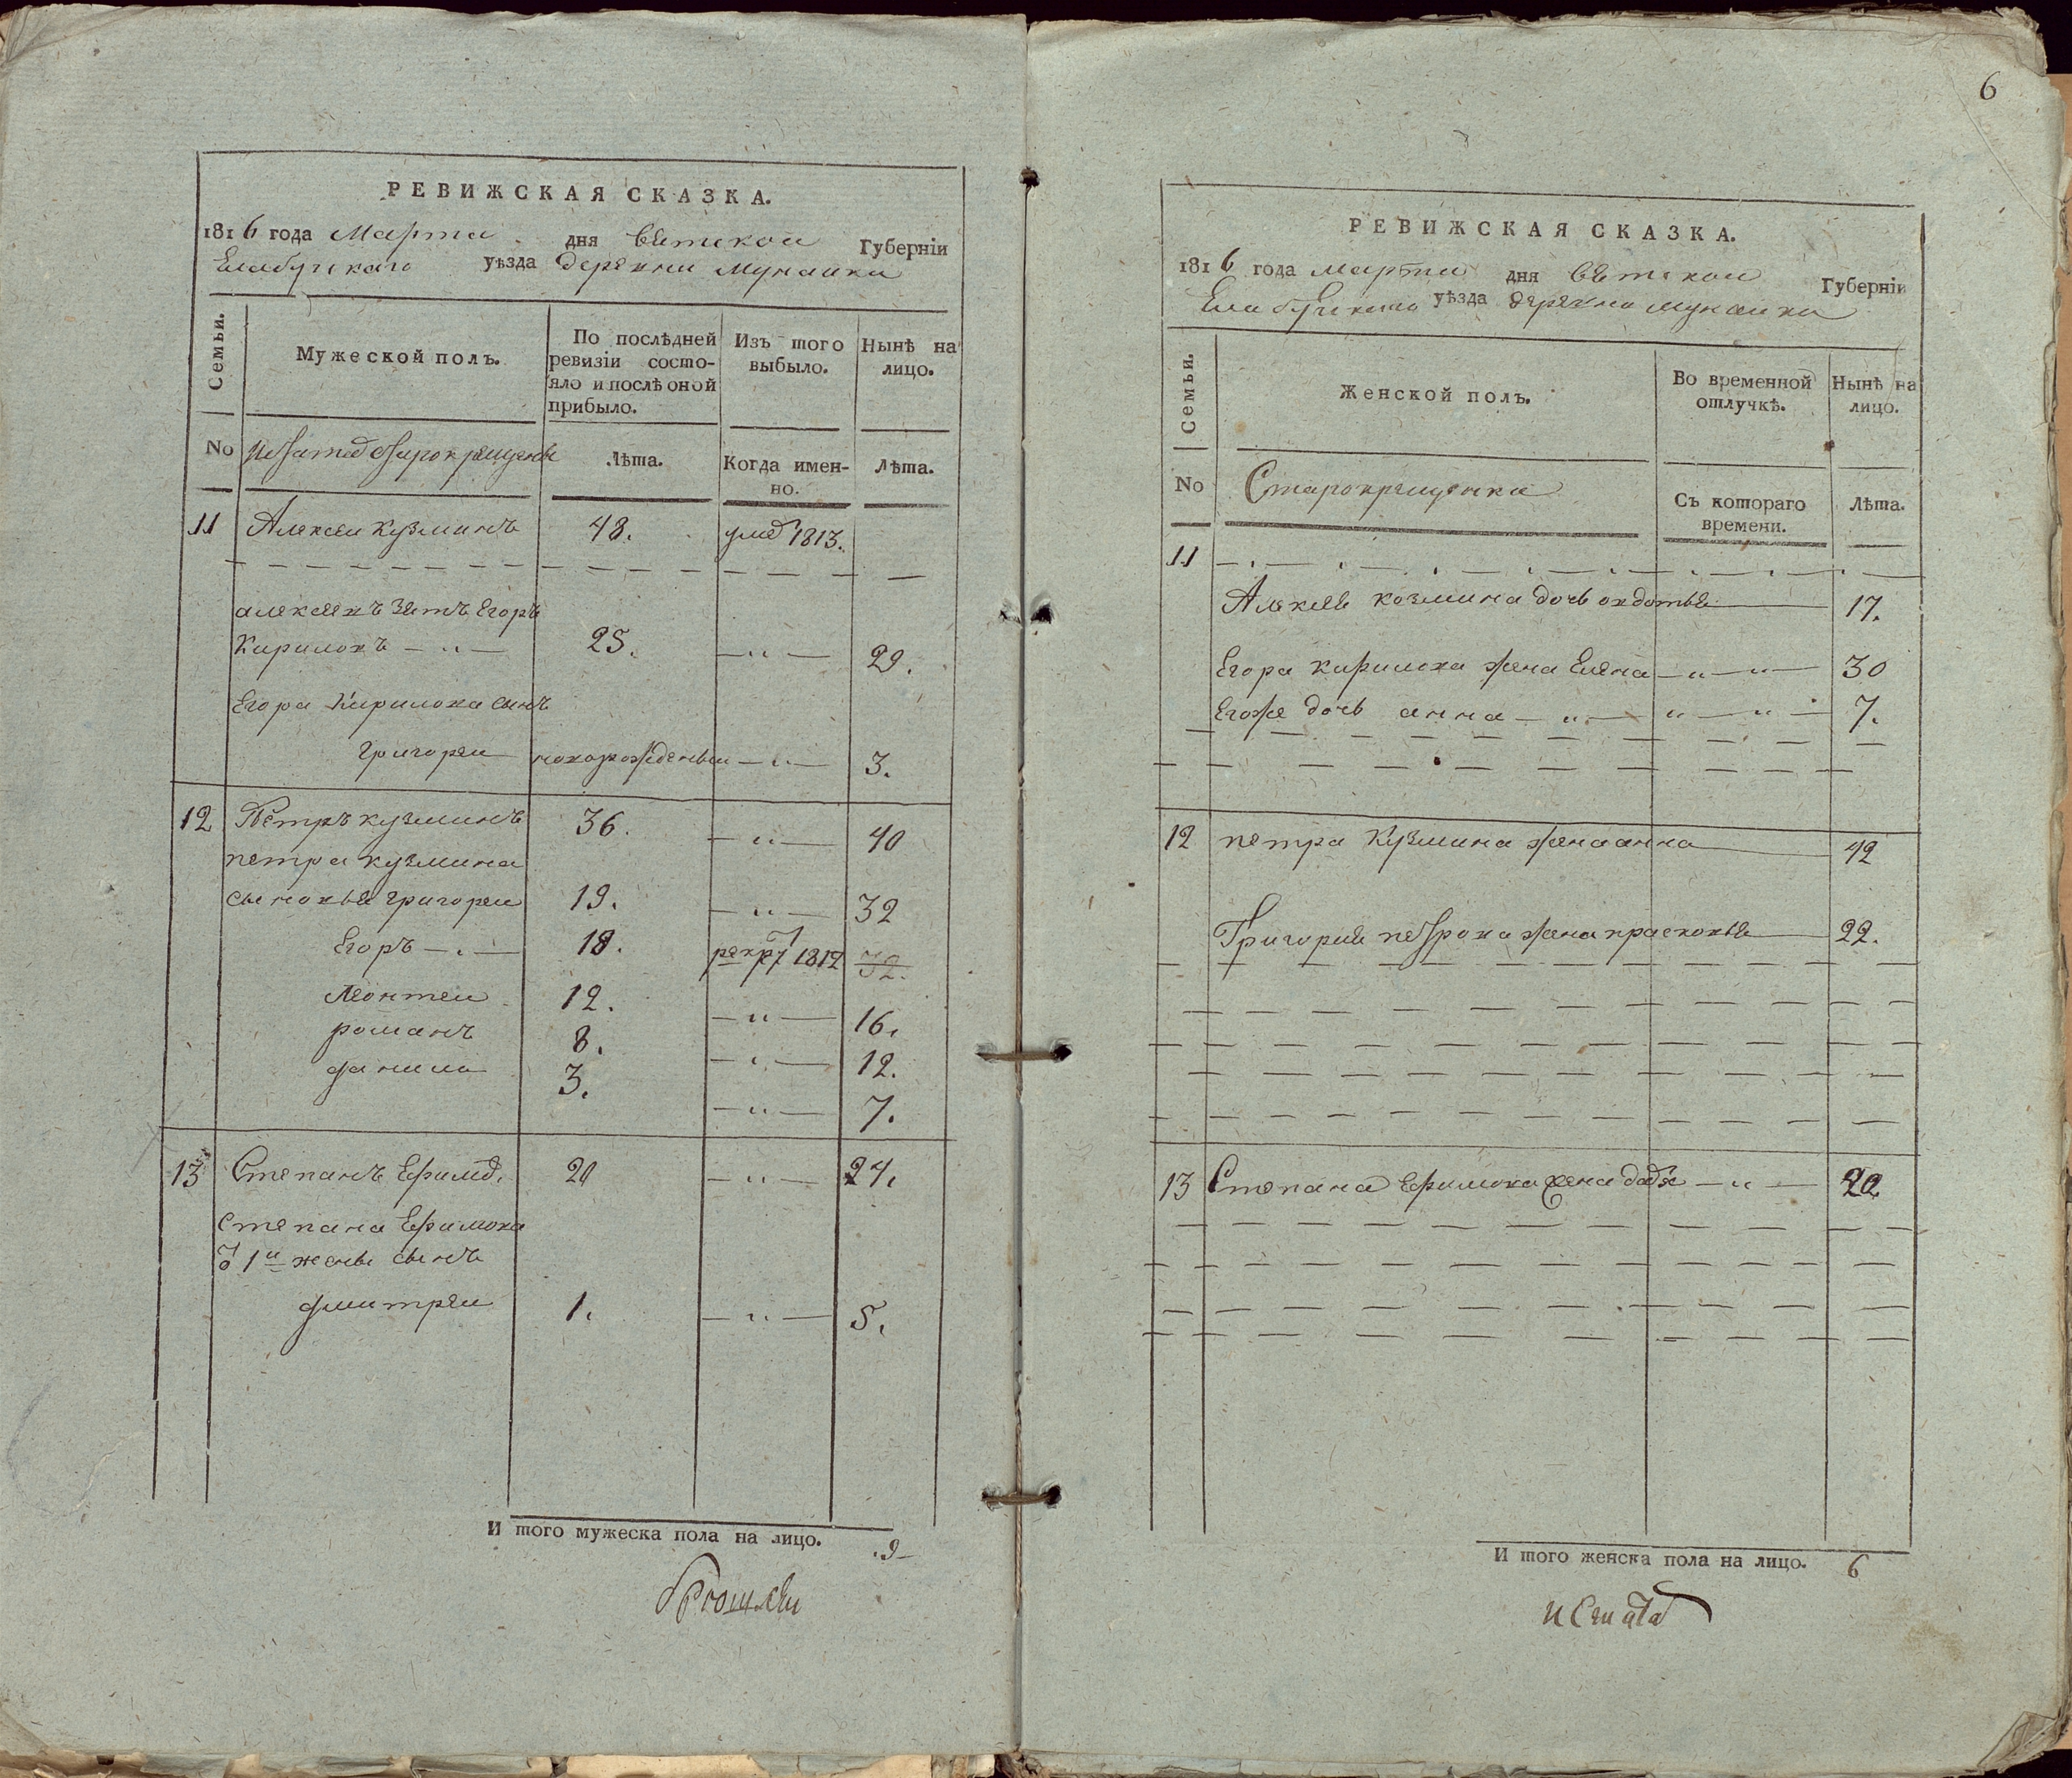 РЕВИЖСКАЯ СКАЗКА.
1816 года Марта дня Вятской Губерніи
Елабугскаго уѣзда деревни Мунайки
Семьи.
Мужеской полъ.
По послѣдней ревизіи состо-
яло и послѣ оной прибыло.
Изъ того выбыло.
Нынѣ на лицо.
No
старокрещены
Лѣта.
Когда имен-
но.
Лѣта.
11 Алексеи Кузминъ 48. умеръ 1813.
алексеявъ зятъ Егоръ
Кириловъ 25. 29.
Егора Кирилова сынъ
Григореи новорожденыи 3.
12 Петръ кузминъ 36. 40
петра кузмина
сыновья григореи 19. 32
Егоръ 18. рекр 1812 32.
Леонтеи 12. 16.
романъ 8. 12.
данило 3. 7.
13 Степанъ Ефимов. 20 24.
степана Ефимова
от 1й жены сынъ
дмитреи 1. 5.
И того мужеска пола на лицо. 9
6
РЕВИЖСКАЯ СКАЗКА.
1816 года марта дня вятскои Губерніи
Елабугскаго уѣзда деревни мунаики
Семьи.
Женской полъ.
Во временной отлучкѣ.
Нынѣ на лицо.
No
Старокрещенки
Съ котораго времени.
Лѣта.
11
Алексея козмина дочь овдотья 17.
Егора кирилова жена Елена 30
Егоже дочь анна 7.
12 петра Кузмина жена анна 42
Григорья петрова жена прасковья 22.
13 Степана Ефимова жена 22
И того женска пола на лицо. 6